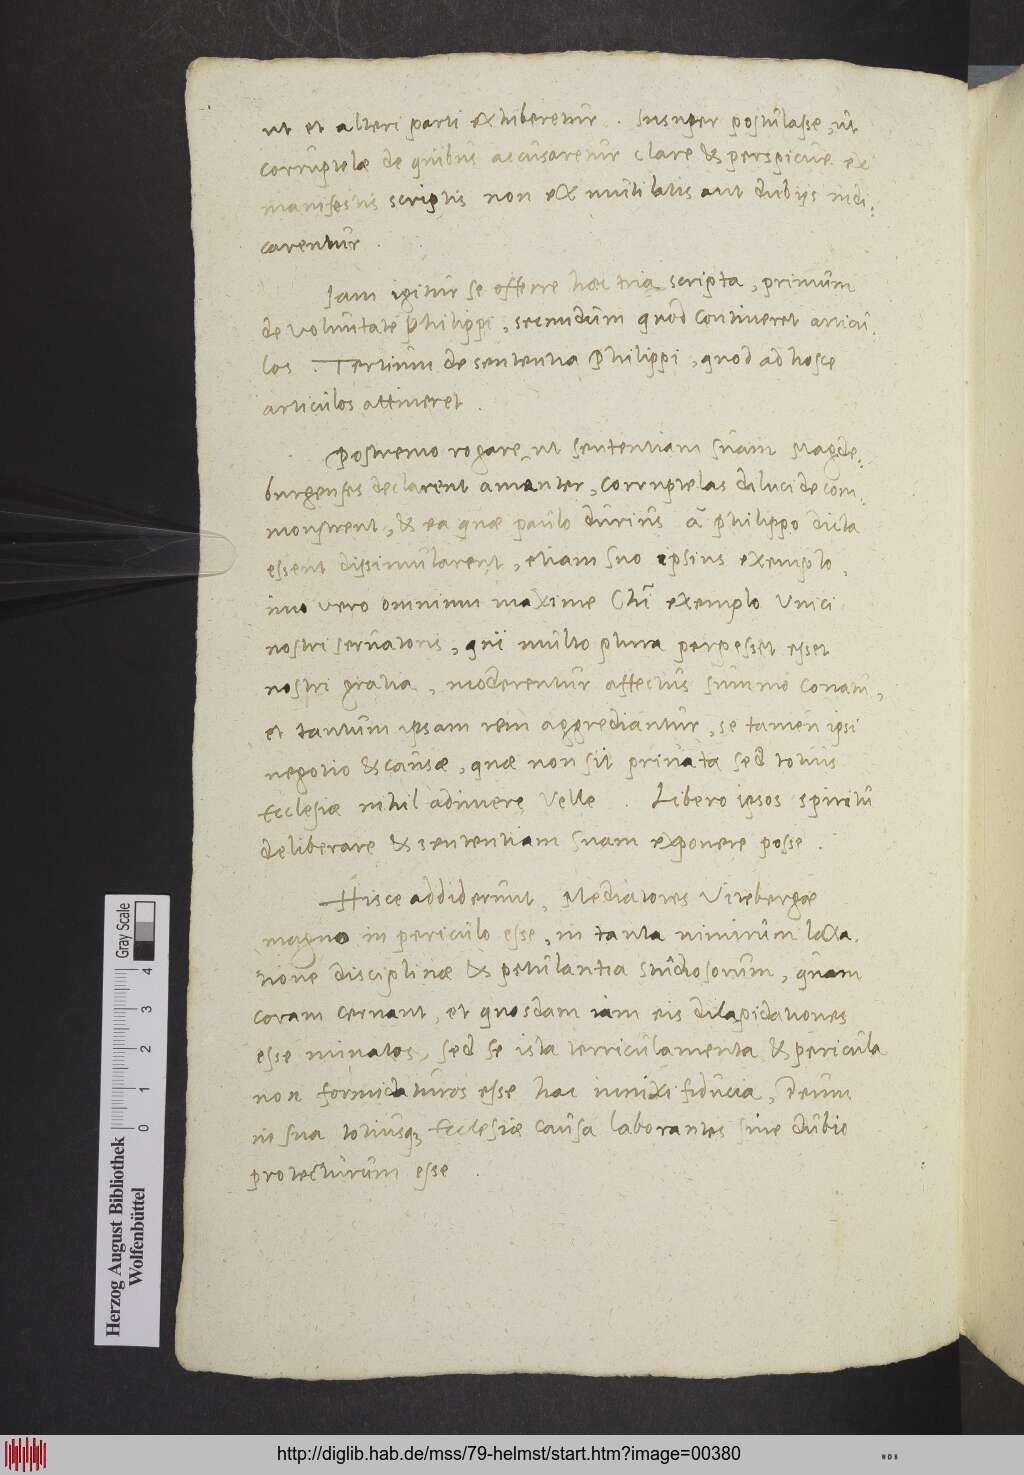 ut et alteri parti exhiberetur. Insuper postulasse, ut
corruptelae de quibus accusaretur clare & perspicue ex
manifestis scriptis non ex mutilatis aut dubijs indi:
carentur.
Iam igitur se offerre haec tria scripta, primum
de voluntate Philippi, secundum quod contineret articu:
los. Tertium de sententia Philippi, quod ad hosce
articulos attineret.
Postremo rogare ut sententiam suam Magde:
burgenses declarent amanter, corruptelas dilucide com:
monstrent, & ea quae paulo durius a Philippo dicta
essent dissimularent, etiam suo ipsius exemplo,
imo vero omnium maxime Chri exemplo Unici
nostri servatoris, qui multo plura perpessus esset
nostri gratia, moderentur affectus summo conatu,
et tantum ipsam rem aggrediantur, se tamen ipsi
negotio & causae, quae non sit privata sed totius
Ecclesiae nihil adimere velle. Libero ipsos spiritu
deliberare & sententiam suam exponere posse.
Hisce addiderunt, Mediatores Vitebergae
magno in periculo esse, in tanta nimirum laxa:
tione disciplinae & petulantia studiosorum, quam
coram cernant, et quosdam iam eis dilapidationes
esse minatos, sed se ista terriculamenta & pericula
non formidaturos esse hac innixi fiducia, Deum
in sua totiusq; Ecclesiae causa laborantes sine dubio
protecturum esse.
Herzog August Bibliothek
Wolfenbüttel
0 1 2 3 4
Gray Scale
http://diglib.hab.de/mss/79-helmst/start.htm?image=00380
WDB